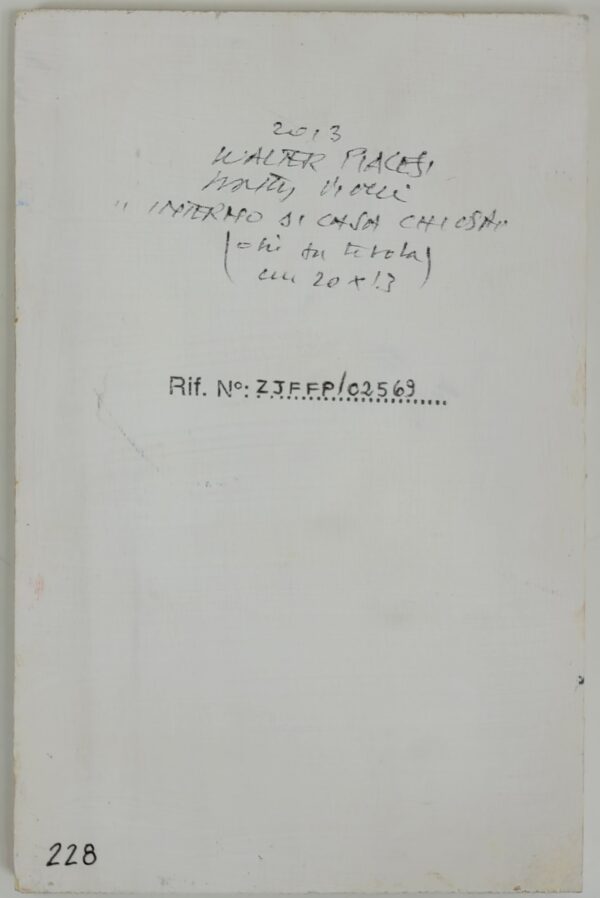 2013
WALTER PIACESI
Walter Piacesi
"INTERNO DI CASA CHIUSA"
(olio su tavola)
cm 20x13
Rif. N°: ZJFFP/02569
228